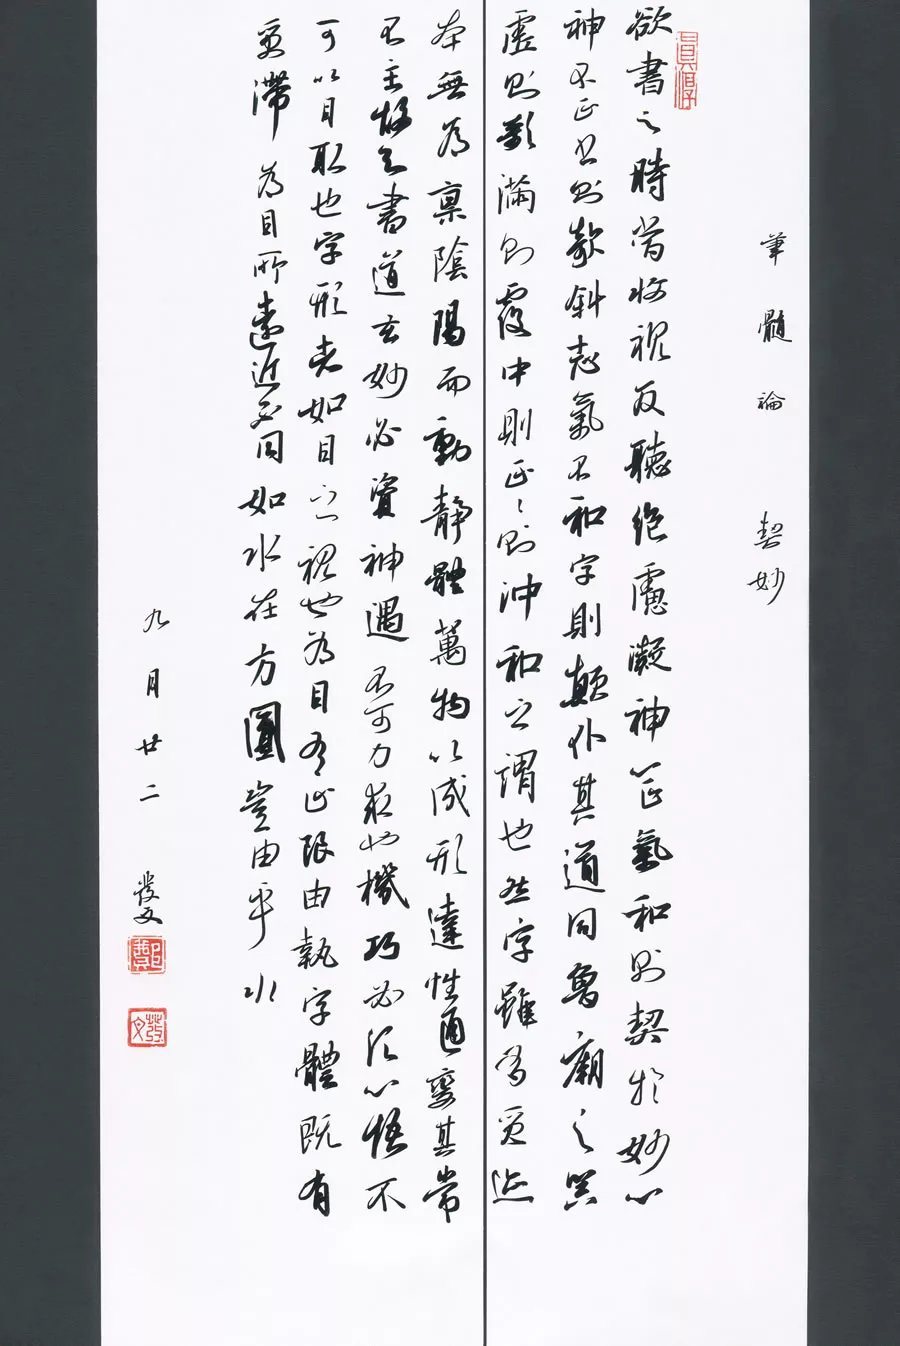 筆髓論 契妙
欲書之時當收視反聽絕慮凝神心正氣和則契於妙心
神不正書則欹斜志氣不和字則顛仆其道同魯廟之器
虛則欹滿則覆中則正〻則沖和之謂也然字雖有質迹
本無為稟陰陽而動靜體萬物以成形達性通變其常
不主故知書道玄妙必資神遇不可力求也機巧必須心悟不
可以目取也字形者如目之視也為目有止限由執字體既有
質滯為目所遠近不同如水在方圓豈由乎水
九月廿二 發文